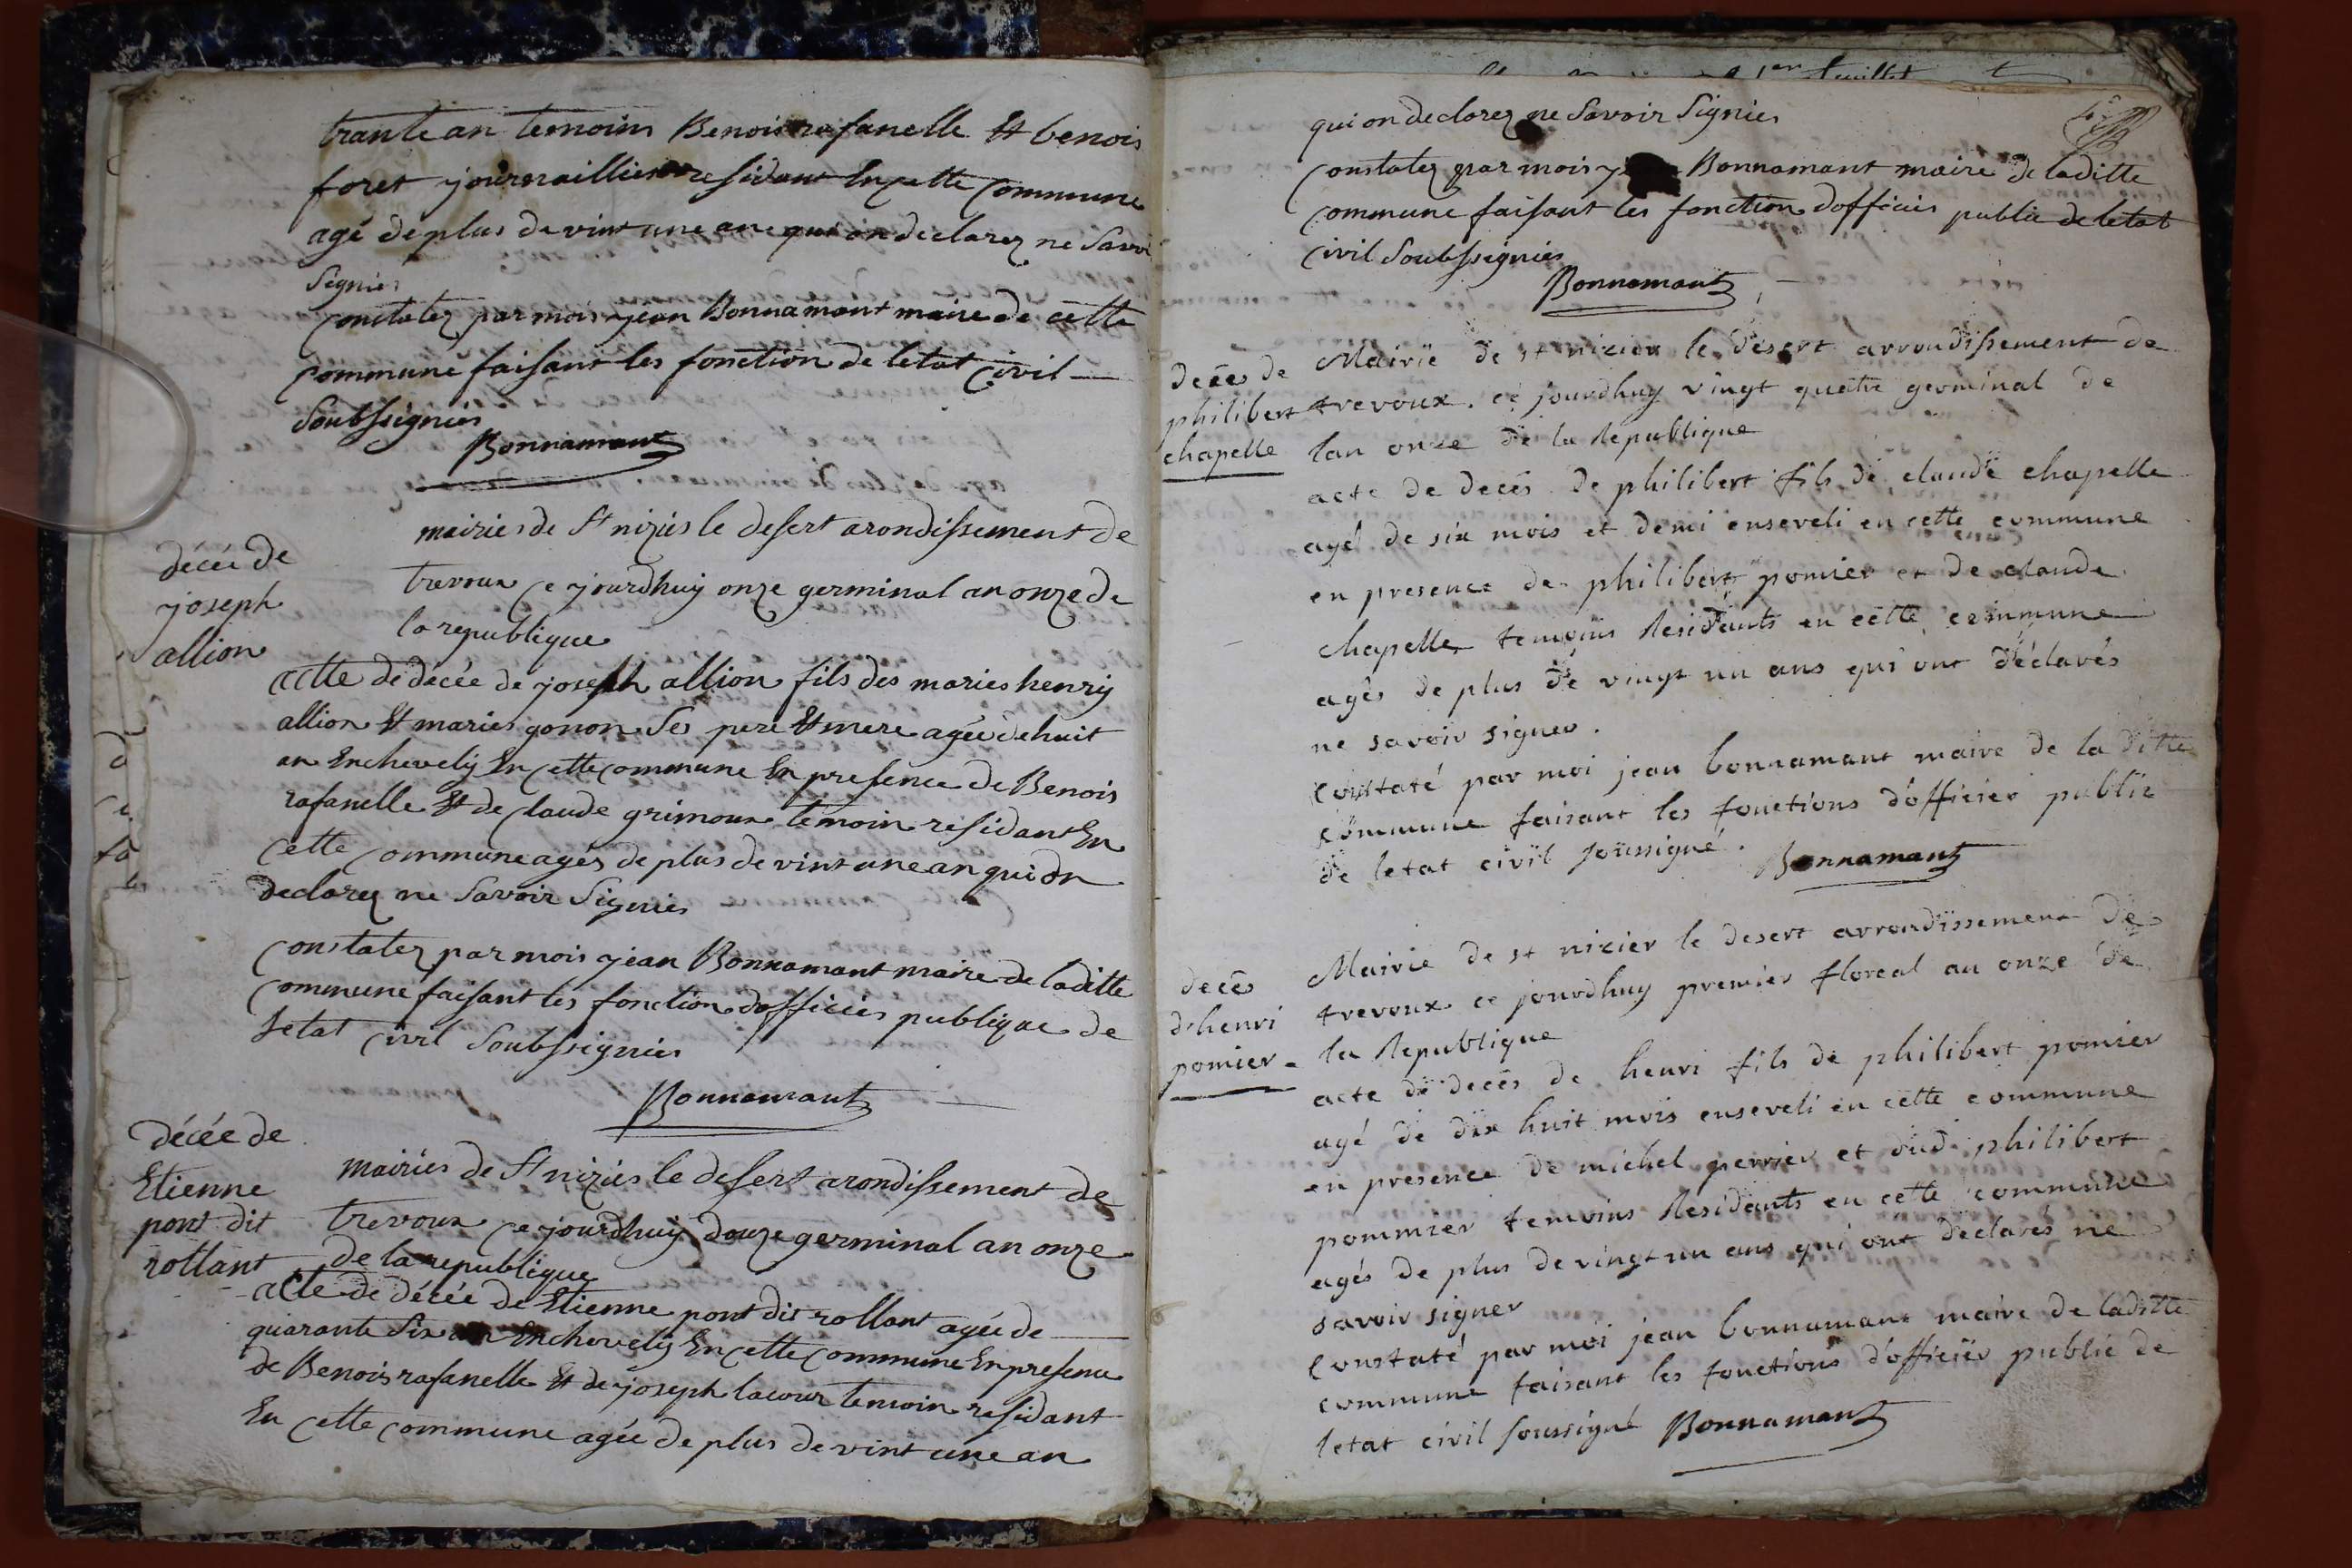 trante an temoins Benois rafanelle Et benois
foret journaillier residant En cette commune
agé de plus de vint une an qui on declarez ne Savoi
Signier
constatez par mois jean Bonnamant maire de cette
commune faisant les fonction de letat civil
Soubssignier
Bonnamant
décée de
joseph
allion
mairies de St niziés le desert arondissement de
trevoux ce jourdhuij onze germinal an onze de
la republique
actte de décée de joseph allion fils des maries henrij
allion Et maries gonon Ses pere Et mere agée de huit
an Enchevelij En cette commune En presence de Benois
rafanelle Et de claude grimoux temoin residant En
cette commune agés de plus de vint une an qui on
declarez ne Savoir Signier
constatez par mois jean Bonnamant maire de laditte
commune faisant les fonction dofficiés publique de
letat civil Soubssignier
Bonnamant
décée de
Etienne
pont dit
rollant
mairies de St niziés le desert arondissement de
trevoux ce jourdhuij douze germinal an onze
de la republique
acte de décée de Etienne pont dit rollant agée de
quarante Six an Enchevelij En cette commune En presence
de Benois rafanelle Et de joseph lacour temoin residant
En cette commune agée de plus de vint une an
1er feuillet
qui on declarez ne Savoir Signier
constatez par mois Bonnamant maire de laditte
commune faisant les fonction dofficiés public de letat
civil Soubssignier
Bonnamant
Decès de
philibert
chapelle
Mairie de st nizier le desert arrondissement de
trevoux. ce jourdhuy vingt quatre germinal de
lan onze de la Republique
acte de decès de philibert fils de claude chapelle
agé de six mois et demi enseveli en cette commune
en presence de philibert pomier et de claude
chapelle temoins Residants en cette commune
agés de plus de vingt un ans qui ont déclarés
ne savoir signer.
constaté par moi jean bonnamant maire de la ditte
commune faisant les fonctions d'officier public
de letat civil soussigné. Bonnamant
decès
d'henri
pomier
Mairie de st nizier le desert arrondissement de
trevoux ce jourdhuy premier floreal an onze de
la Republique
acte de decès de henri fils de philibert pomier
agé de dix huit mois enseveli en cette commune
en presence de michel perrier et dud. philibert
pommier temoins Residants en cette commune
agés de plus de vingt un ans qui ont declarés ne
savoir signer
Constaté par moi jean bonnamant maire de laditte
commune faisant les fonctions d'officier public de
letat civil soussigné Bonnamant